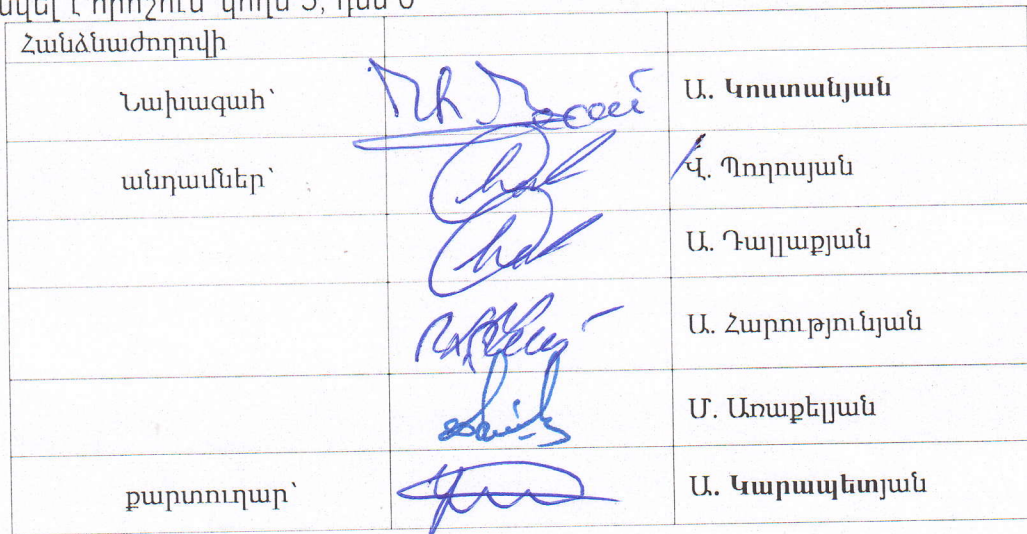 է որոշում կողմ 5, դեմ 0
Հանձնաժողովի
Նախագահ՝ Ա. Կոստանյան
անդամներ՝ Վ. Պողոսյան
Ա. Դալլաքյան
Ա. Հարությունյան
Մ. Առաքելյան
քարտուղար՝ Ա. Կարապետյան